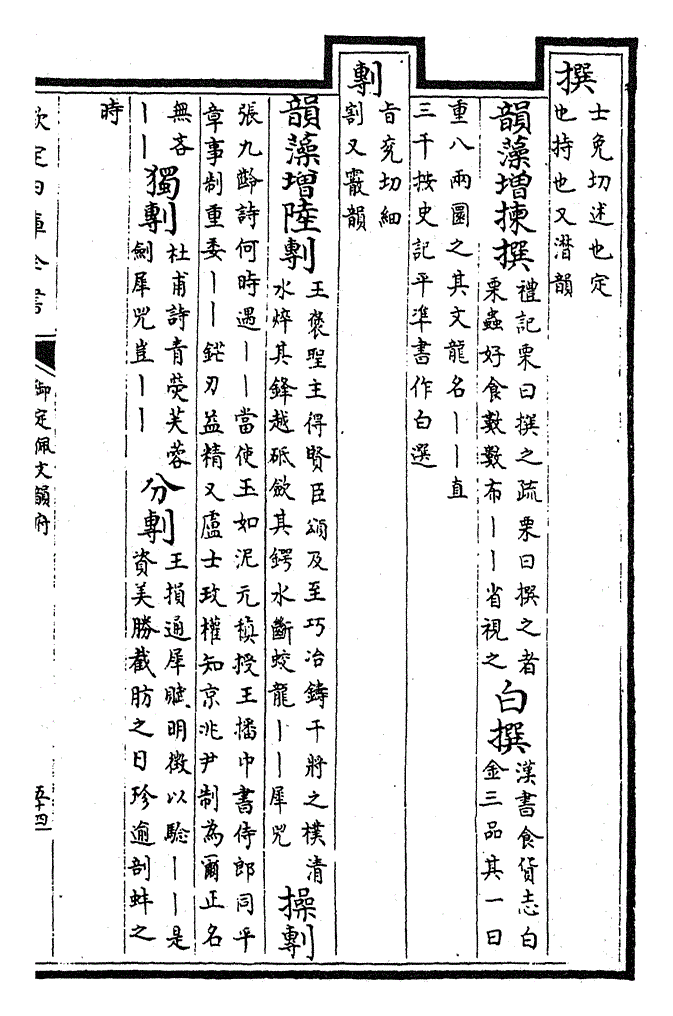 撰
士免切述也定
也持也又潸韻
韻藻增揀撰
禮記栗曰撰之疏栗曰撰之者
栗蟲好食數數布丨丨省視之
白撰
漢書食貨志白
金三品其一曰
重八兩圜之其文龍名丨丨直
三千按史記平準書作白選
剸
旨兖切細
割又霰韻
韻藻增陸剸
王褒聖主得賢臣頌及至巧冶鑄干將之樸清
水焠其鋒越砥歛其鍔水斷蛟龍丨丨犀兕
操剸
張九齡詩何時遇丨丨當使玉如泥元稹授王播中書侍郎同平
章事制重委丨丨鋩刃益精又盧士玫權知京兆尹制為爾正名
無吝
丨丨
獨剸
杜甫詩青熒芙蓉
劍犀兕豈丨丨
分剸
王損通犀賦明徴以騐丨丨是
資美勝截肪之日珍逾剖蚌之
時
欽定四庫全書
御定佩文韻府
五十四